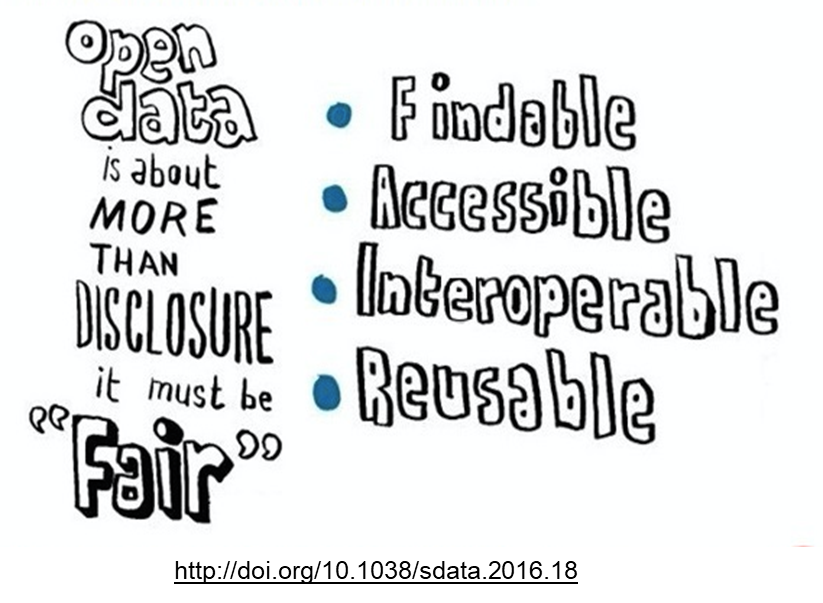 open
data
is about
MORE
THAN
DISCLOSURE
it must be
“Fair”
• Findable
• Accessible
• Interoperable
• Reusable
http://doi.org/10.1038/sdata.2016.18